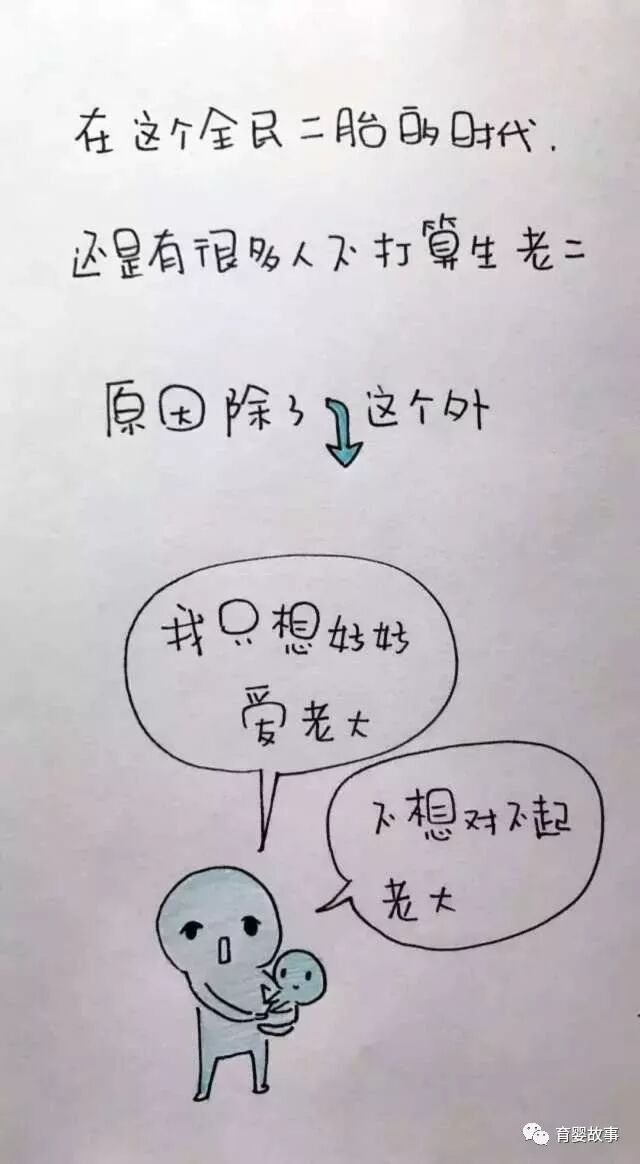 在这个全民二胎的时代.
还是有很多人不打算生老二
原因除了这个外
我只想好好
爱老大
不想对不起
老大
育婴故事